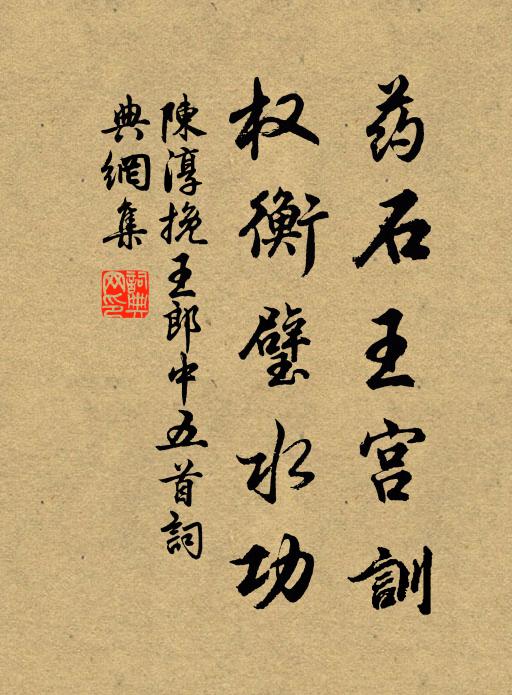 药石王宫訓
权衡璧水功
陳淳挽王郎中五首詞
典網集
詞典网印